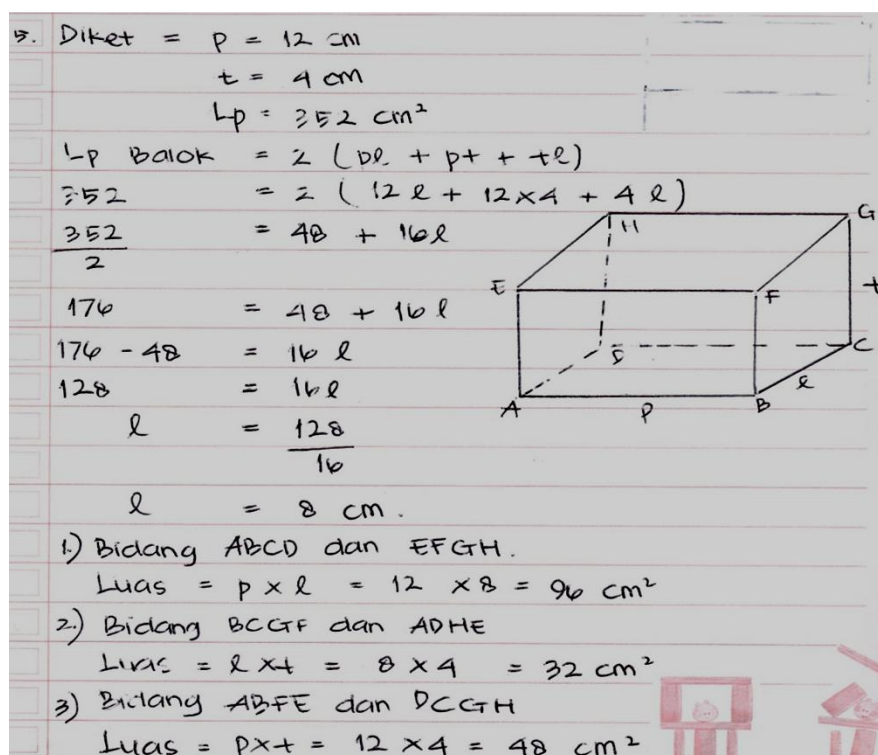 5. Diket = p = 12 cm
t = 4 cm
Lp = 352 cm²
Lp Balok = 2 (pl + pt + tl)
352 = 2 (12 l + 12x4 + 4 l)
352/2 = 48 + 16l
176 = 48 + 16 l
176 - 48 = 16 l
128 = 16l
l = 128/16
l = 8 cm.
H G
E F t
D C
l
A p B
1.) Bidang ABCD dan EFGH.
Luas = p x l = 12 x 8 = 96 cm²
2.) Bidang BCGF dan ADHE
Luas = l x t = 8 x 4 = 32 cm²
3) Bidang ABFE dan DCGH
Luas = p x t = 12 x 4 = 48 cm²